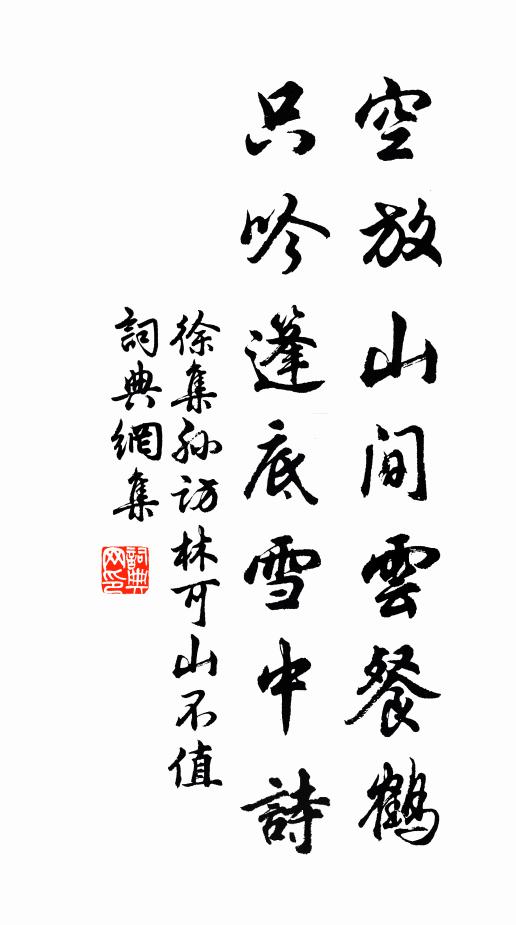 空放山間雲餐鶴
只吟蓬底雪中詩
徐集孙訪林可山不值
詞典網集
詞典网印